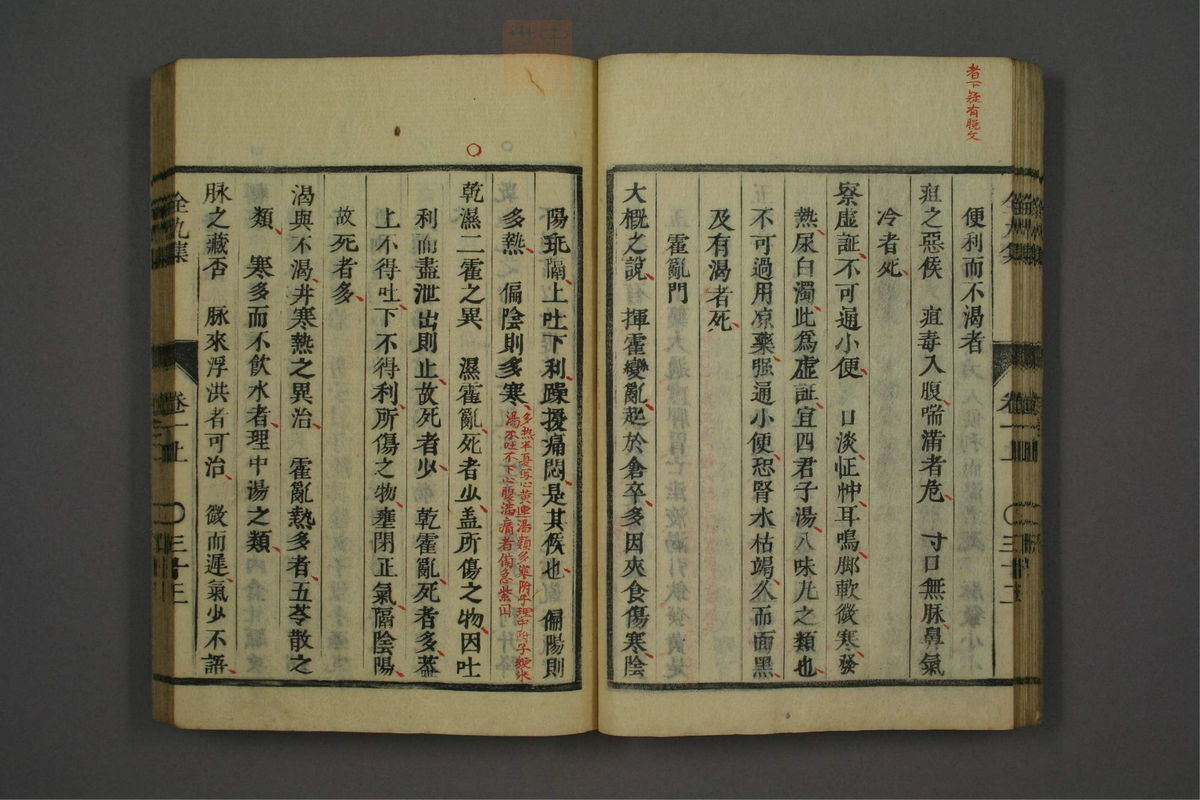 者下疑有脱文
便利而不渴者
疸之惡候　疸毒入腹喘滿者危　寸口無脉鼻氣
冷者死
察虛証不可通小便　口淡怔忡耳鳴脚軟微寒發
熱尿白濁此爲虛証宜四君子湯八味丸之類也
不可過用凉藥强通小便恐腎水枯竭久而面黑
及有渴者死
霍亂門
大概之說　揮霍變亂起於倉卒多因夾食傷寒陰
全九集
卷一上
三十三
陽玩隔上吐下利躁擾痛悶是其候也　偏陽則
多熱　偏陰則多寒
多熱半夏瀉心黄連湯類多寒附子理中附子粳米
湯不吐不下心腹滿痛者備急紫圓
乾濕二霍之異　濕霍亂死者少盖所傷之物因吐
利而盡泄出則止故死者少　乾霍亂死者多蓋
上不得吐下不得利所傷之物壅閉正氣隔陰陽
故死者多
渴與不渴并寒熱之異治　霍亂熱多者五苓散之
類　寒多而不飲水者理中湯之類
脉之藏否　脉來浮洪者可治　微而遲氣少不語
全九集
卷一上
三十三